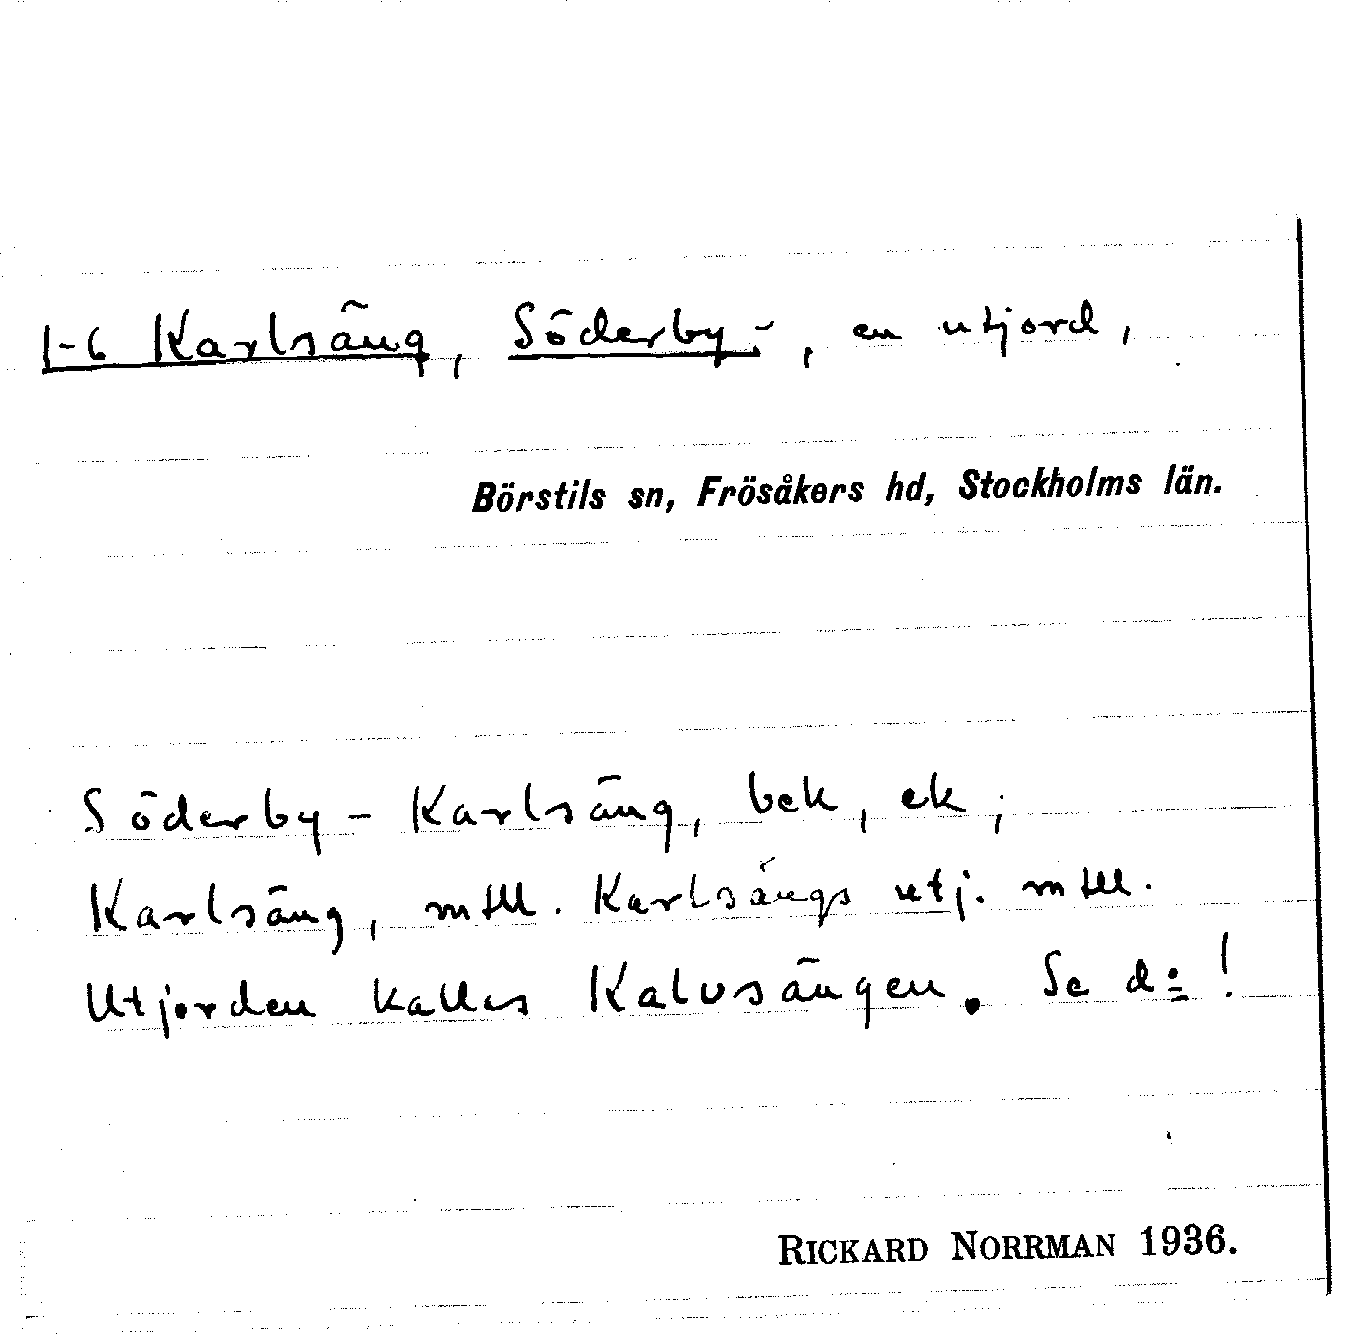 1-6 Karlsäng, Söderby-, en utjord,
Börstils sn, Frösåkers hd, Stockholms län.
Söderby-Karlsäng, bek, ek;
Karlsäng, mtll. Karlsängs utj. mtll.
Utjorden kallas Kalvsängen. Se do!
RICKARD NORRMAN 1936.